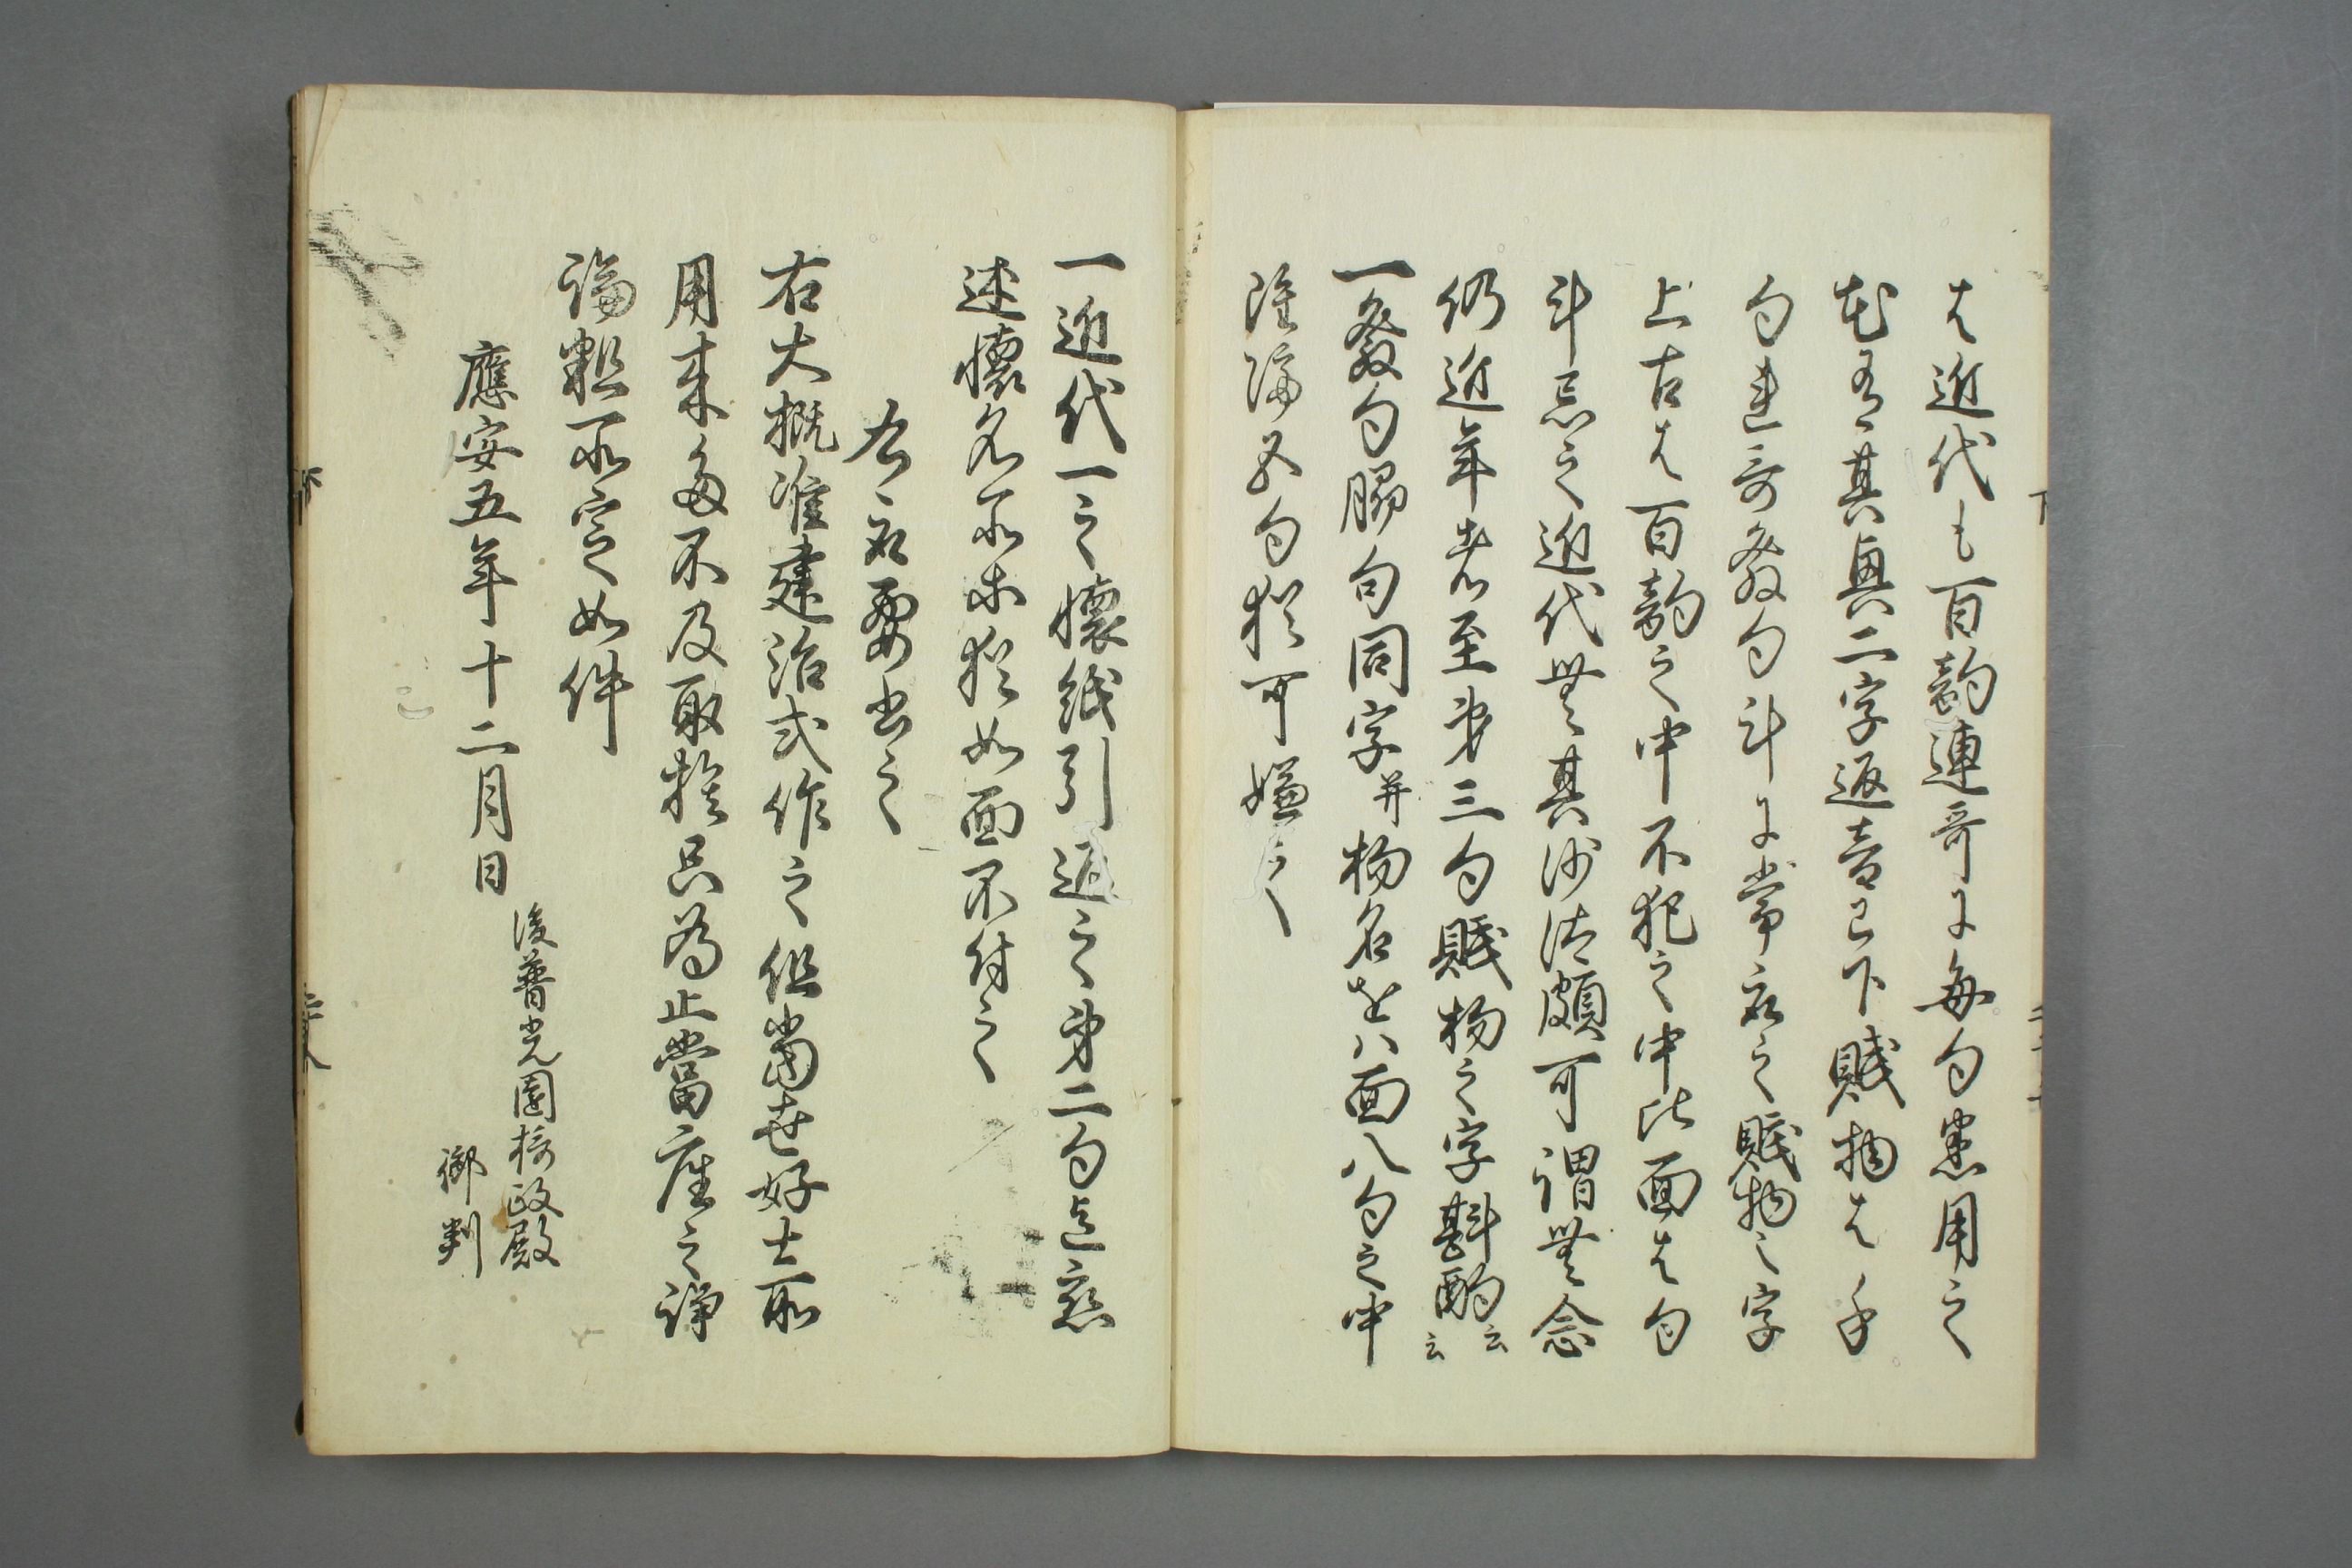 は近代も百韵連哥に毎句悉用之
尤有其興二字返音已下賦物は多
句連哥發句計に常取之賦物之字
上古は百韵之中不犯之中比面は句
計忌之近代無其沙汰頗可謂無念
仍近年老至第三句賦物之字斟酌云云
一發句脇句同字并物名をハ面八句之中
隨隔五句猶可嫌之
一近代一之懐紙引返之第二句迄戀
述懐名所等猶如面不付之
右取要書之
右大概准建治式作之但當世好士所
用来多不及取捨只為止當座之諍
論粗所定如件
應安五年十二月日
後普光園摂政殿
御判